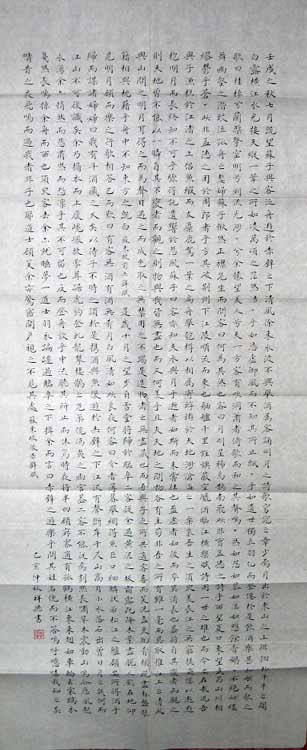 壬戌之秋七月既望蘇子與客泛舟遊於赤壁之下清風徐來水波不興舉酒屬客誦明月之詩歌窈窕之章少焉月出於東山之上徘徊於斗牛之間
白露橫江水光接天縱一葦之所如凌萬頃之茫然浩浩乎如馮虛御風而不知其所止飄飄乎如遺世獨立羽化而登仙於是飲酒樂甚扣舷而歌之
歌曰桂棹兮蘭槳擊空明兮泝流光渺渺兮余懷望美人兮天一方客有吹洞簫者倚歌而和之其聲嗚嗚然如怨如慕如泣如訴餘音嫋嫋不絕如縷
舞幽壑之潛蛟泣孤舟之嫠婦蘇子愀然正襟危坐而問客曰何為其然也客曰月明星稀烏鵲南飛此非曹孟德之詩乎西望夏口東望武昌山川相
繆鬱乎蒼蒼此非孟德之困於周郎者乎方其破荊州下江陵順流而東也舳艫千里旌旗蔽空釃酒臨江橫槊賦詩固一世之雄也而今安在哉況吾
與子漁樵於江渚之上侶魚蝦而友麋鹿駕一葉之扁舟舉匏樽以相屬寄蜉蝣於天地渺滄海之一粟哀吾生之須臾羨長江之無窮挾飛仙以遨遊
抱明月而長終知不可乎驟得託遺響於悲風蘇子曰客亦知夫水與月乎逝者如斯而未嘗往也盈虛者如彼而卒莫消長也蓋將自其變者而觀之
則天地曾不能以一瞬自其不變者而觀之則物與我皆無盡也而又何羨乎且夫天地之間物各有主苟非吾之所有雖一毫而莫取惟江上之清風
與山間之明月耳得之而為聲目遇之而成色取之無禁用之不竭是造物者之無盡藏也而吾與子之所共適客喜而笑洗盞更酌肴核既盡杯盤狼
籍相與枕藉乎舟中不知東方之既白 蘇東坡前赤壁賦 是歲十月之望步自雪堂將歸於臨皋二客從余過黃泥之坂霜露既降木葉盡脫人影在地仰
見明月顧而樂之行歌相答已而歎曰有客無酒有酒無肴月白風清如此良夜何客曰今者薄暮舉網得魚巨口細鱗狀如松江之鱸顧安所得酒乎
歸而謀諸婦婦曰我有斗酒藏之久矣以待子不時之需於是攜酒與魚復遊於赤壁之下江流有聲斷岸千尺山高月小水落石出曾日月之幾何而
江山不可復識矣余乃攝衣而上履巉巖披蒙茸踞虎豹登虯龍攀棲鶻之危巢俯馮夷之幽宮蓋二客不能從焉劃然長嘯草木震動山鳴谷應風起
水湧余亦悄然而悲肅然而恐凜乎其不可留也反而登舟放乎中流聽其所止而休焉時夜將半四顧寂寥適有孤鶴橫江東來翅如車輪玄裳縞衣
戛然長鳴掠予舟而西也須臾客去余亦就睡夢一道士羽衣蹁躚過臨皋之下揖余而言曰赤壁之遊樂乎問其姓名俛而不答嗚呼噫嘻我知之矣
疇昔之夜飛鳴而過我者非子也耶道士顧笑余亦驚寤開戶視之不見其處 蘇東坡後赤壁賦
乙亥仲秋祥德書